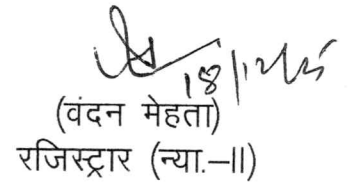 18/12/25
(वंदन मेहता)
रजिस्ट्रार (न्या.–II)